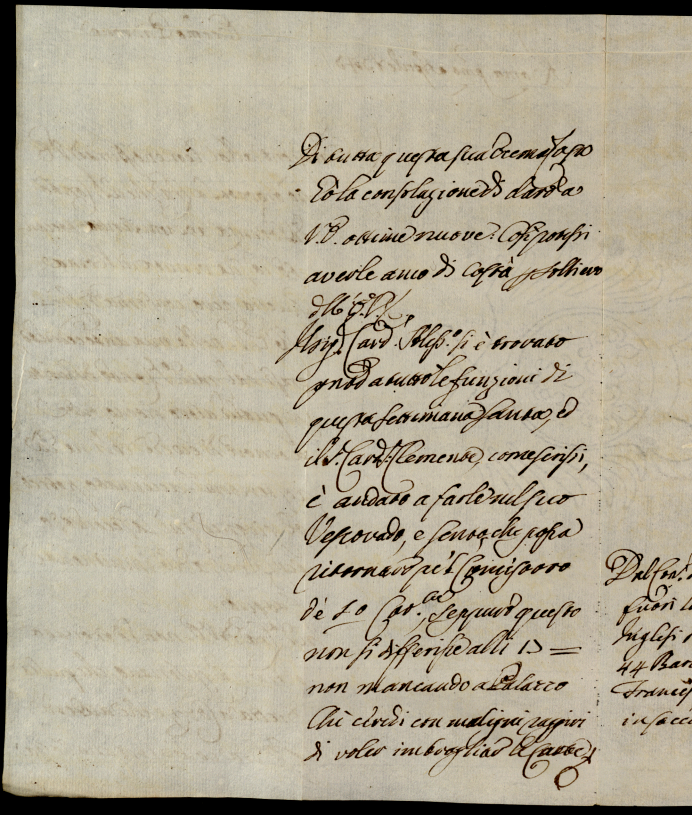 Di tutta questa sua Eccma Casa
ò la consolazione di dare a
V.E. ottime nuove. Così possi
averle anco di costà p sollievo
Il Sig.r Card. Aless.o si è trovato
pnte a tutte le funzioni di
questa settimana santa, ed
il S.r Card.l Clemente, come scrissi,
è andato a farle nel suo
Vescovado, e sento che possa
ritornare p il Concistoro
de 10 Cor.te, seppure questo
non si differisce alli 13 =
non mancando a Palazzo
Chi credi con maligni raggiri
di voler imbrogliar le Carte
Dal
fuori
Inglesi
44 Bar
Frances
in sacc